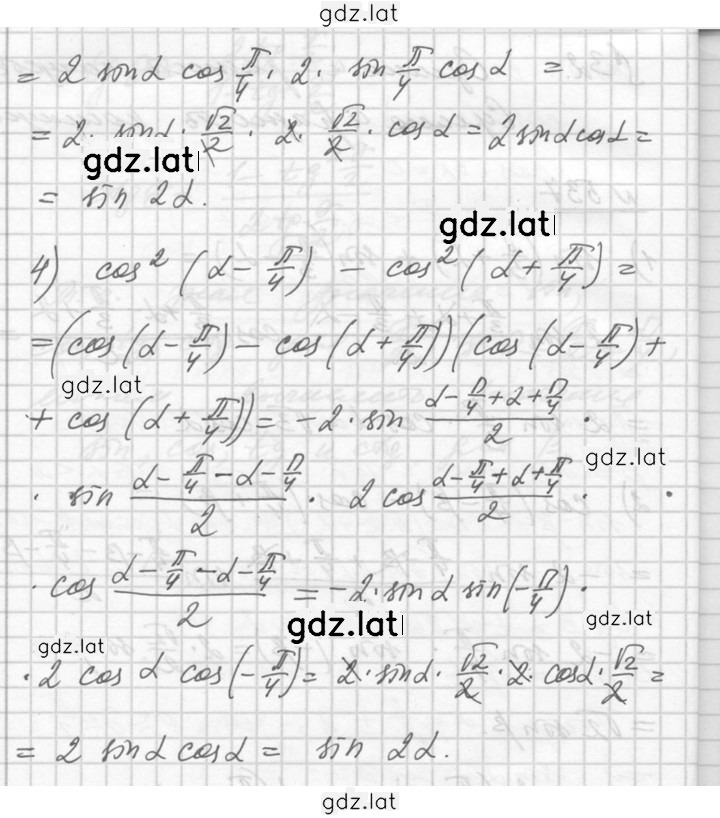 gdz.lat
= 2 sinα cos π/4 · 2 · sin π/4 cos α =
= 2 · sinα · √2/2 · 2 · √2/2 · cos α = 2 sinα cosα =
gdz.lat
= sin 2α.
gdz.lat
4) cos² (α - π/4) - cos² (α + π/4) =
= (cos (α - π/4) - cos (α + π/4)) (cos (α - π/4) +
gdz.lat
+ cos (α + π/4)) = -2 · sin (α - π/4 + α + π/4)/2 ·
gdz.lat
· sin (α - π/4 - α - π/4)/2 · 2 cos (α - π/4 + α + π/4)/2 ·
· cos (α - π/4 - α - π/4)/2 = -2 · sin α sin (-π/4) ·
gdz.lat
gdz.lat
gdz.lat
· 2 cos α cos (-π/4) = 2 · sinα · √2/2 · 2 · cosα · √2/2 =
= 2 sinα cosα = sin 2α.
gdz.lat